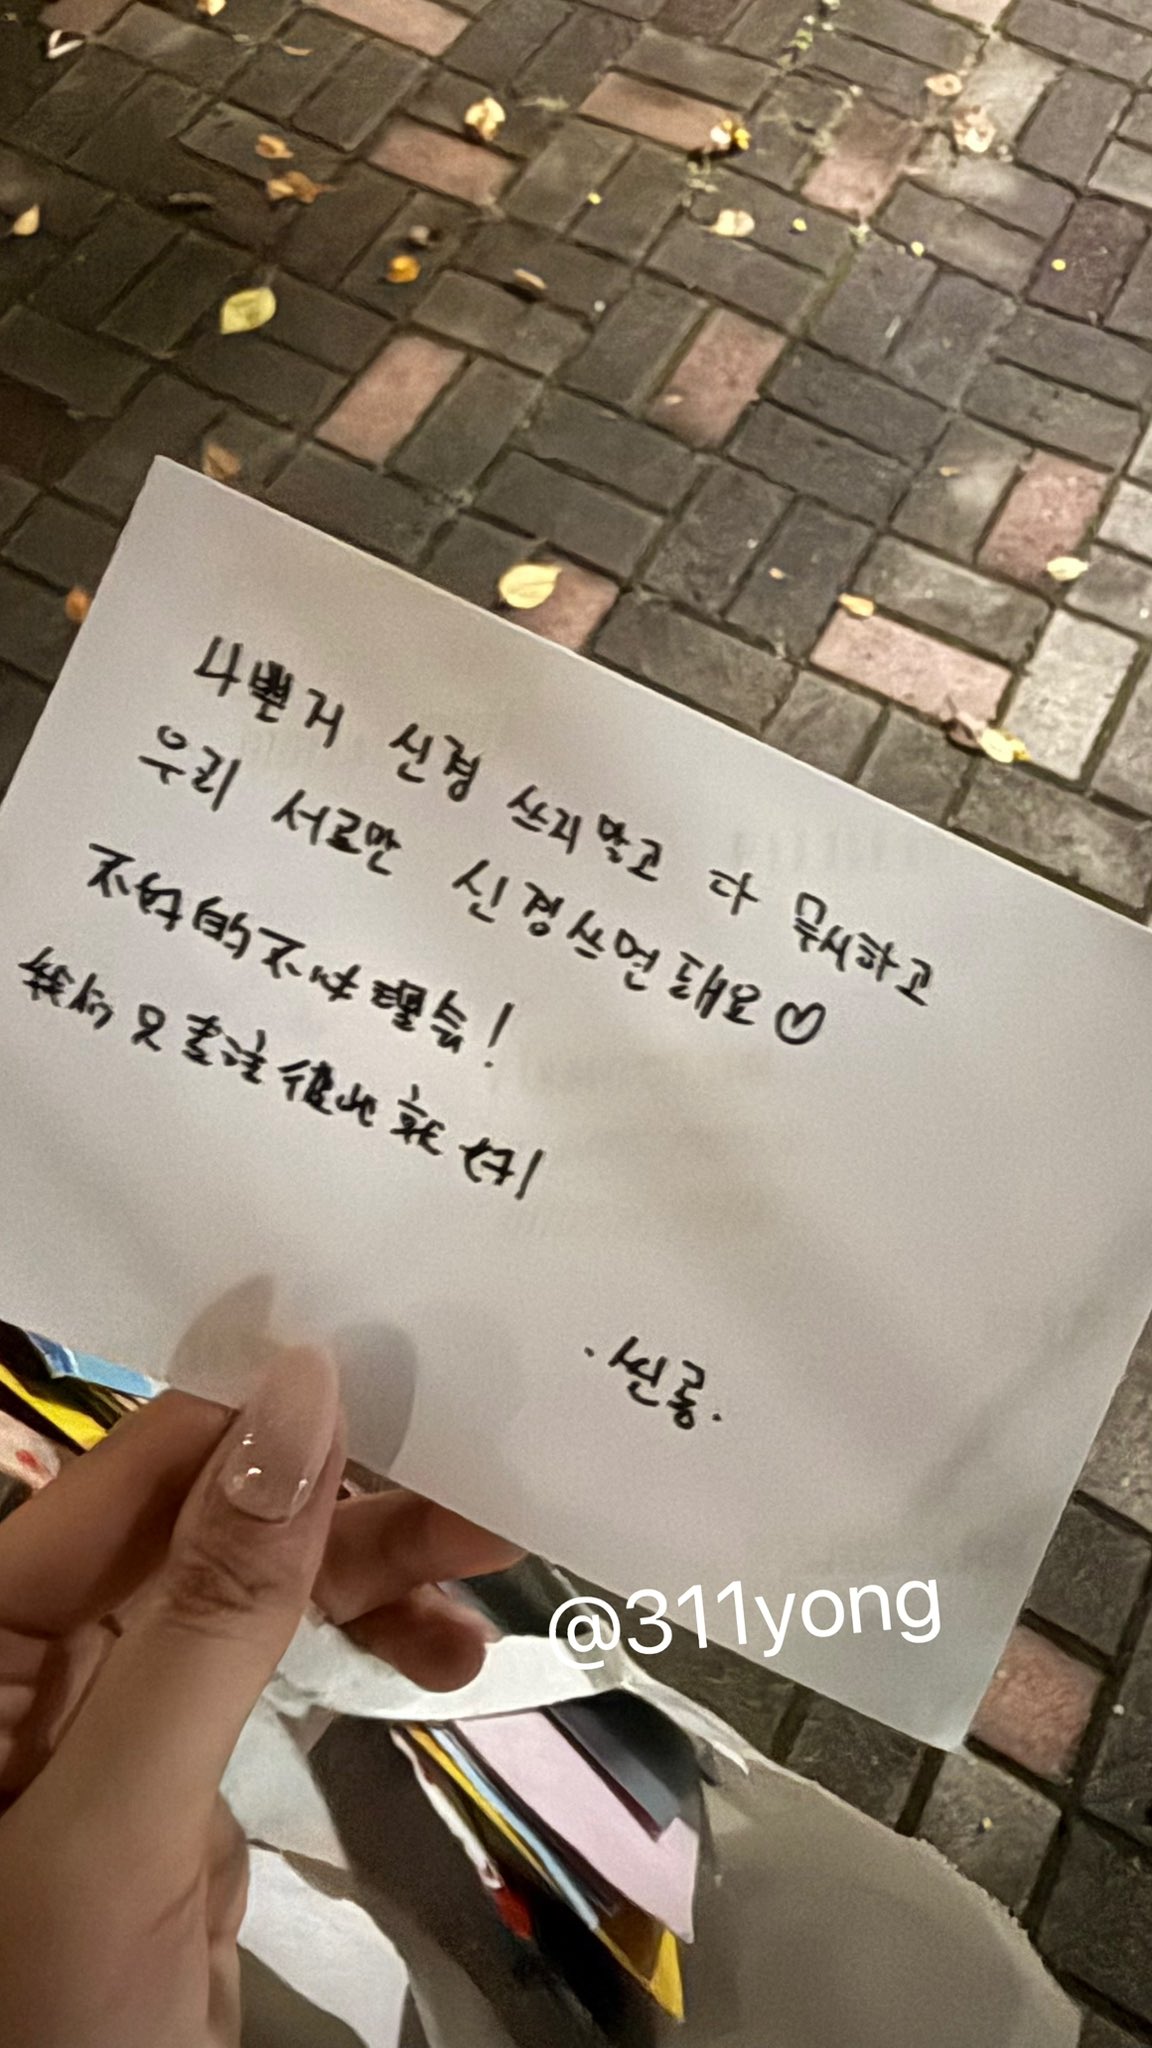 나쁜거 신경 쓰지말고 다 무시하고
우리 서로만 신경쓰면 돼요♡
不好的不必理会!
我们只专注彼此就好!
·씬롱·
@311yong